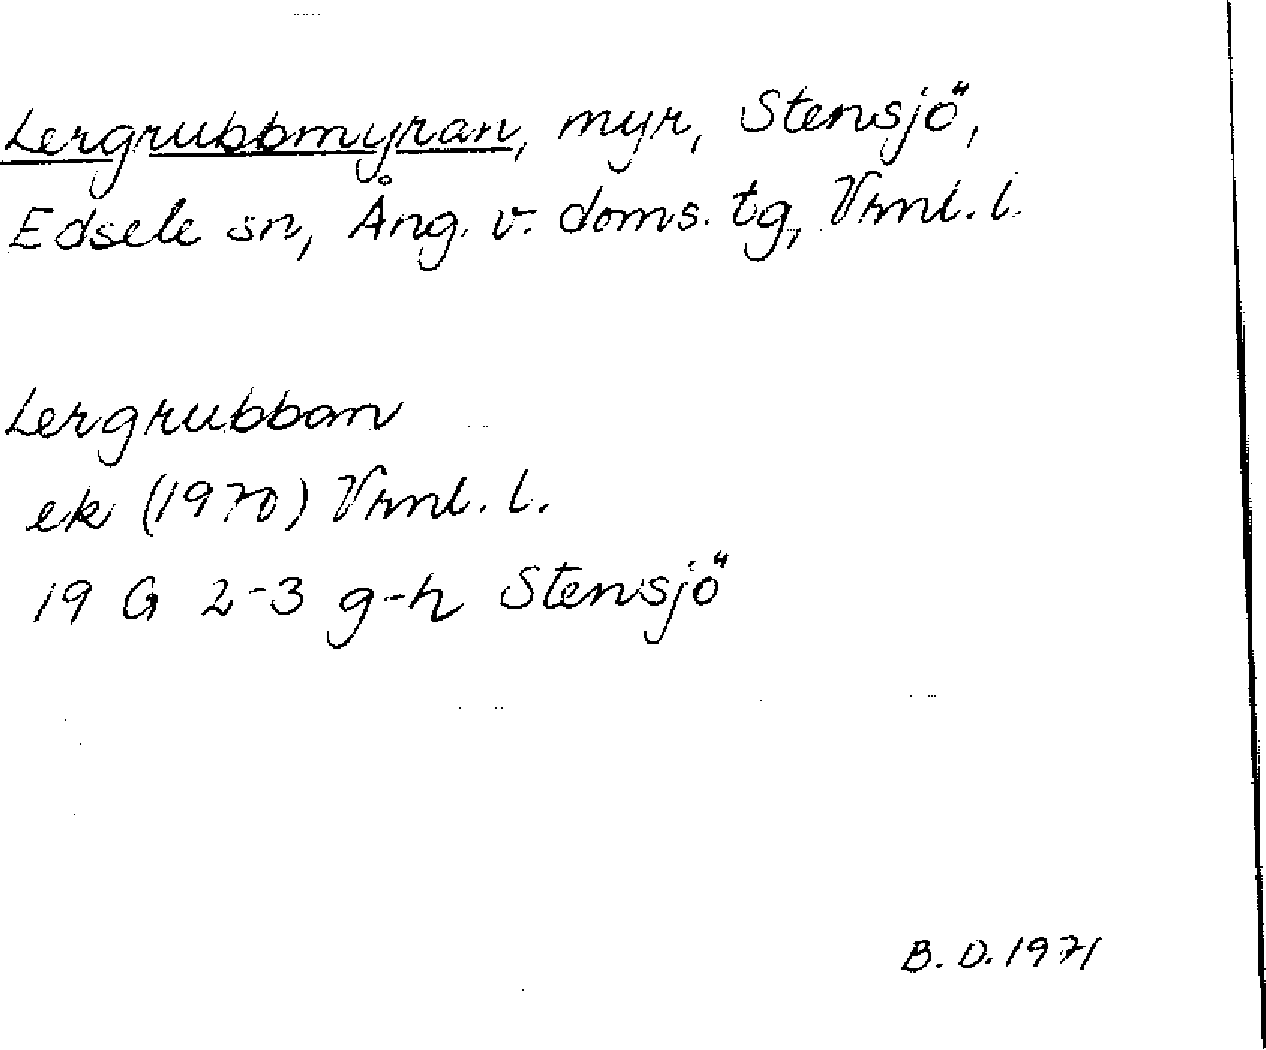 Lergrubbmyran, myr, Stensjö,
Edsele sn, Ång. v. doms. tg, Vrnl. l.
Lergrubban
ek (1970) Vrnl. l.
19 G 2-3 g-h Stensjö
B. D. 1971